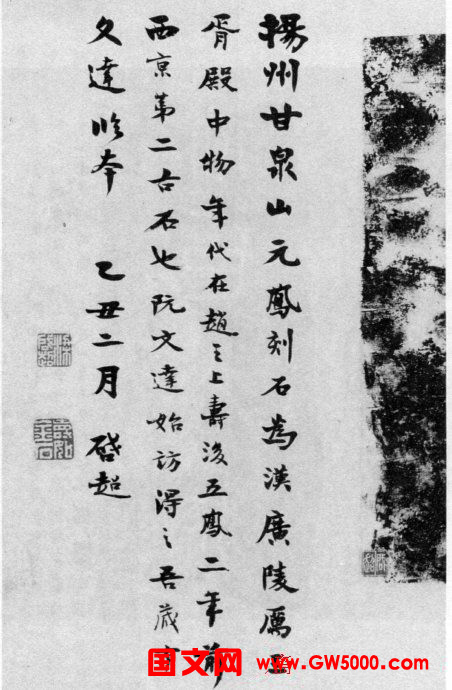 揚州甘泉山元鳳刻石為漢廣陵厲王
胥殿中物年代在趙之上壽後五鳳二年前
西京第二古石也阮文達始訪得之吾藏
文達本 乙丑二月 啓超
国文网 www.GW5000.com